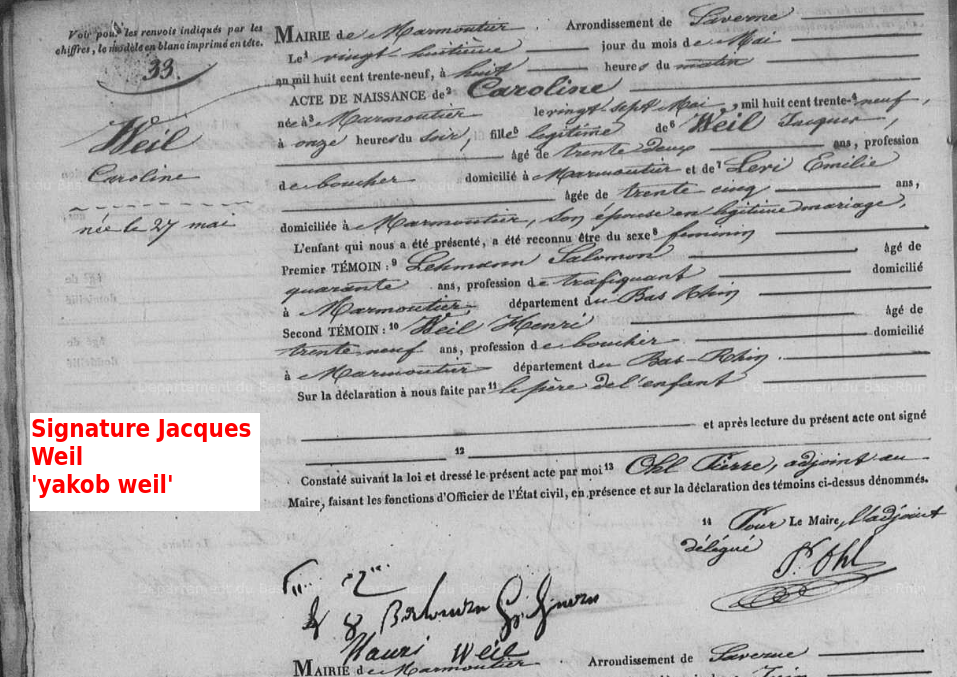 Voir pour les renvois indiqués par les
chiffres, le modèle en blanc imprimé en tête.
33.
Weil
Caroline
née le 27 mai
MAIRIE de Marmoutier . Arrondissement de Saverne
Le¹ vingt huitième jour du mois de Mai
an mil huit cent trente-neuf, à huit heures du matin
ACTE DE NAISSANCE de² Caroline
née à³ Marmoutier le vingt sept Mai, mil huit cent trente-⁴neuf,
à onze heures du soir, fille⁵ légitime de⁶ Weil Jacques,
âgé de trente deux ans, profession
de boucher domicilié à Marmoutier et de⁷ Levi Emilie
âgée de trente cinq ans,
domiciliée à Marmoutier, son épouse en légitime mariage.
L'enfant qui nous a été présenté, a été reconnu être du sexe⁸ féminin
Premier TÉMOIN :⁹ Lehmann Salomon âgé de
quarante ans, profession de trafiquant domicilié
à Marmoutier, département du Bas Rhin
Second TÉMOIN :¹⁰ Weil Henri âgé de
trente neuf ans, profession de boucher domicilié
à Marmoutier département du Bas-Rhin.
Sur la déclaration à nous faite par¹¹ le père de l'enfant
et après lecture du présent acte ont signé
12
Constaté suivant la loi et dressé le présent acte par moi¹³ Ohl Pierre, adjoint au
Maire, faisant les fonctions d'Officier de l'État civil, en présence et sur la déclaration des témoins ci-dessus dénommés.
Signature Jacques
Weil
'yakob weil'
14 Pour Le Maire, l'adjoint
délégué
P. Ohl
Weil
MAIRIE de Marmoutier . Arrondissement de Saverne
Juin
Département du Bas-Rhin